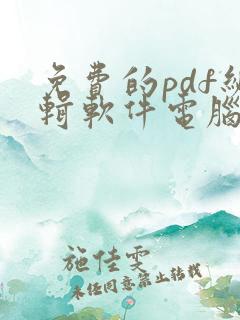 免費的pdf編
輯軟件電腦
施佳雯
未经同意禁止转载